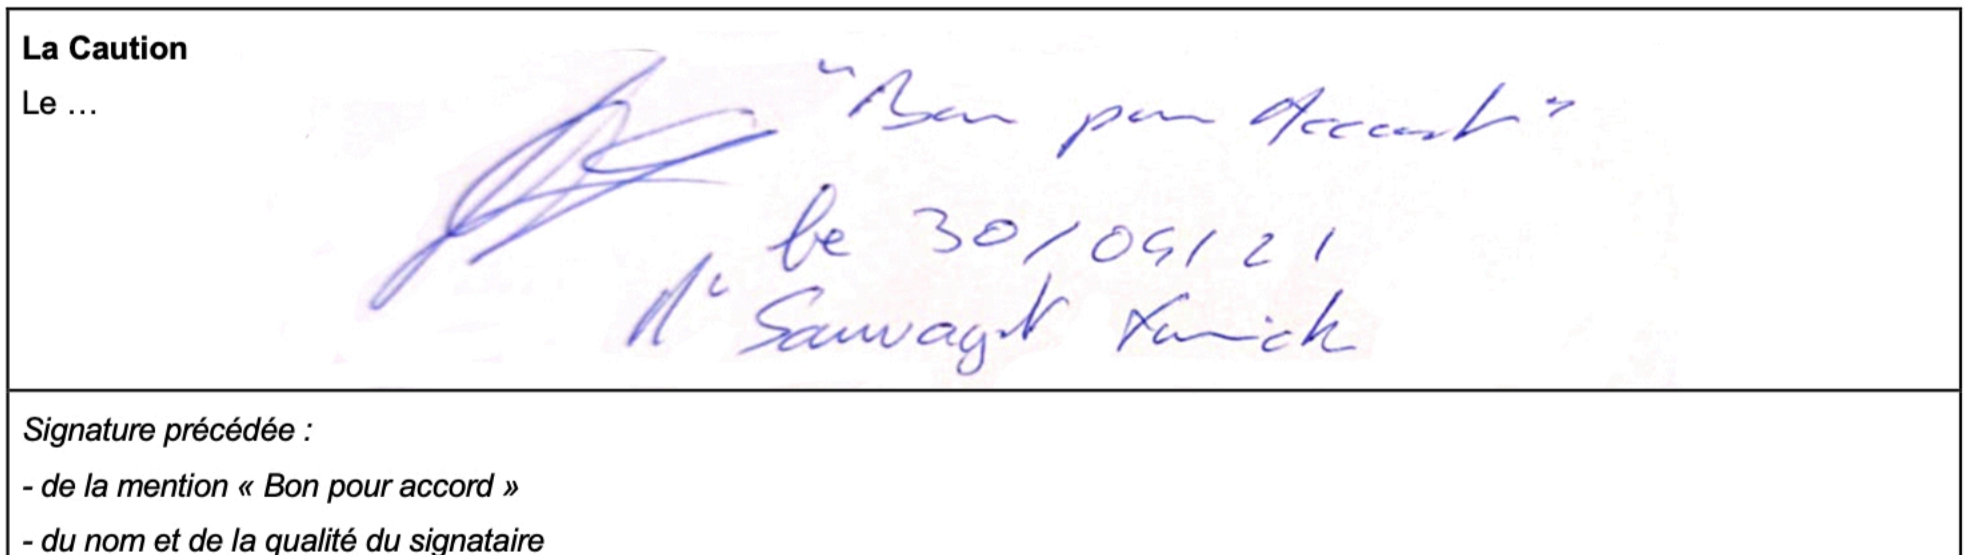 La Caution
Le …
"Bon pour Accord"
le 30/09/21
Sauvaget
Signature précédée :
- de la mention « Bon pour accord »
- du nom et de la qualité du signataire